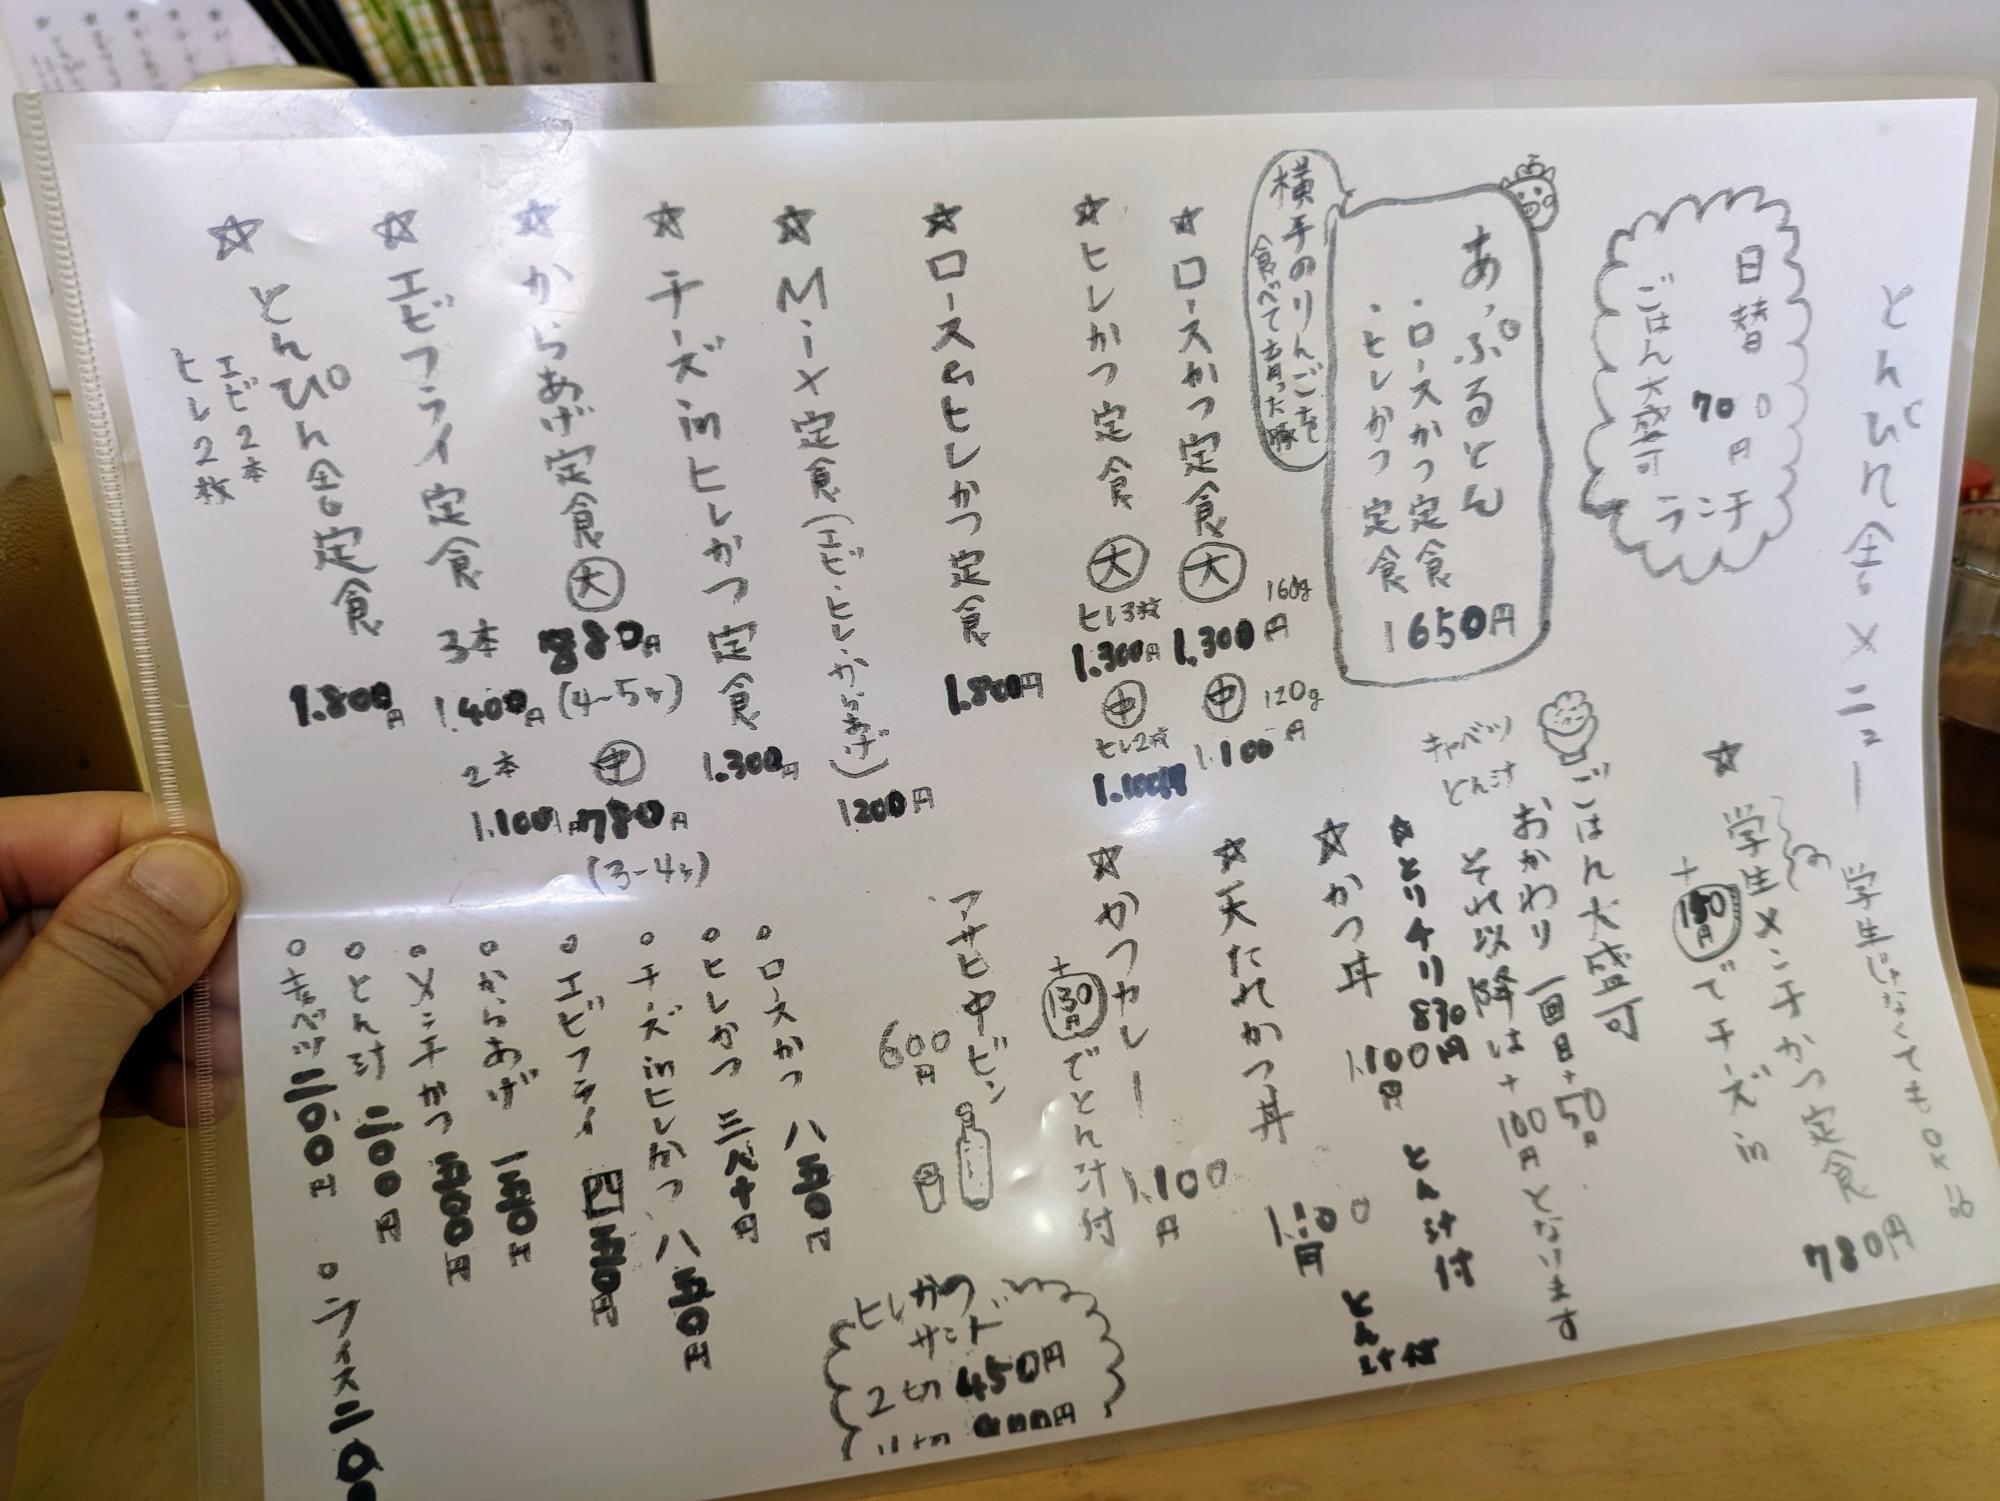 とんぴん舎メニュー
日替
700円
ランチ
ごはん大盛可
あっぷるとん
・ロースかつ定食
・ヒレかつ定食
1650円
横手のりんごを
食べて育った豚
★ロースかつ定食 大 160g 1,300円 中 120g 1,100円
★ヒレかつ定食 大 ヒレ3枚 1,300円 中 ヒレ2枚 1,100円
★ロース&ヒレかつ定食 1,800円
★Mix定食(エビ・ヒレ・からあげ) 1200円
★チーズinヒレかつ定食 1,300円
★からあげ定食 大 880円 (4~5ヶ) 中 780円 (3-4ヶ)
★エビフライ定食 3本 1,400円 2本 1,100円
☆とんぴん舎定食 1,800円
エビ2本
ヒレ2枚
学生じゃなくてもOK
★学生メンチかつ定食 780円
+150円でチーズin
ごはん大盛可
おかわり一回目+50円
それ以降は+100円となります
キャベツ
とん汁
★とりチリ 830円 とん汁付
★かつ丼 1,100円 とん汁付
★天たれかつ丼 1,100円
★かつカレー 1,100円
+130円でとん汁付
アサヒ中ビン
600円
ヒレかつ
サンド
2切 450円
○ロースかつ 八五〇円
○ヒレかつ
○チーズinヒレかつ 八五〇円
○エビフライ 四五〇円
○からあげ 一五〇円
○メンチかつ
○とん汁 二〇〇円
○キャベツ 二〇〇円
○ライス 二〇